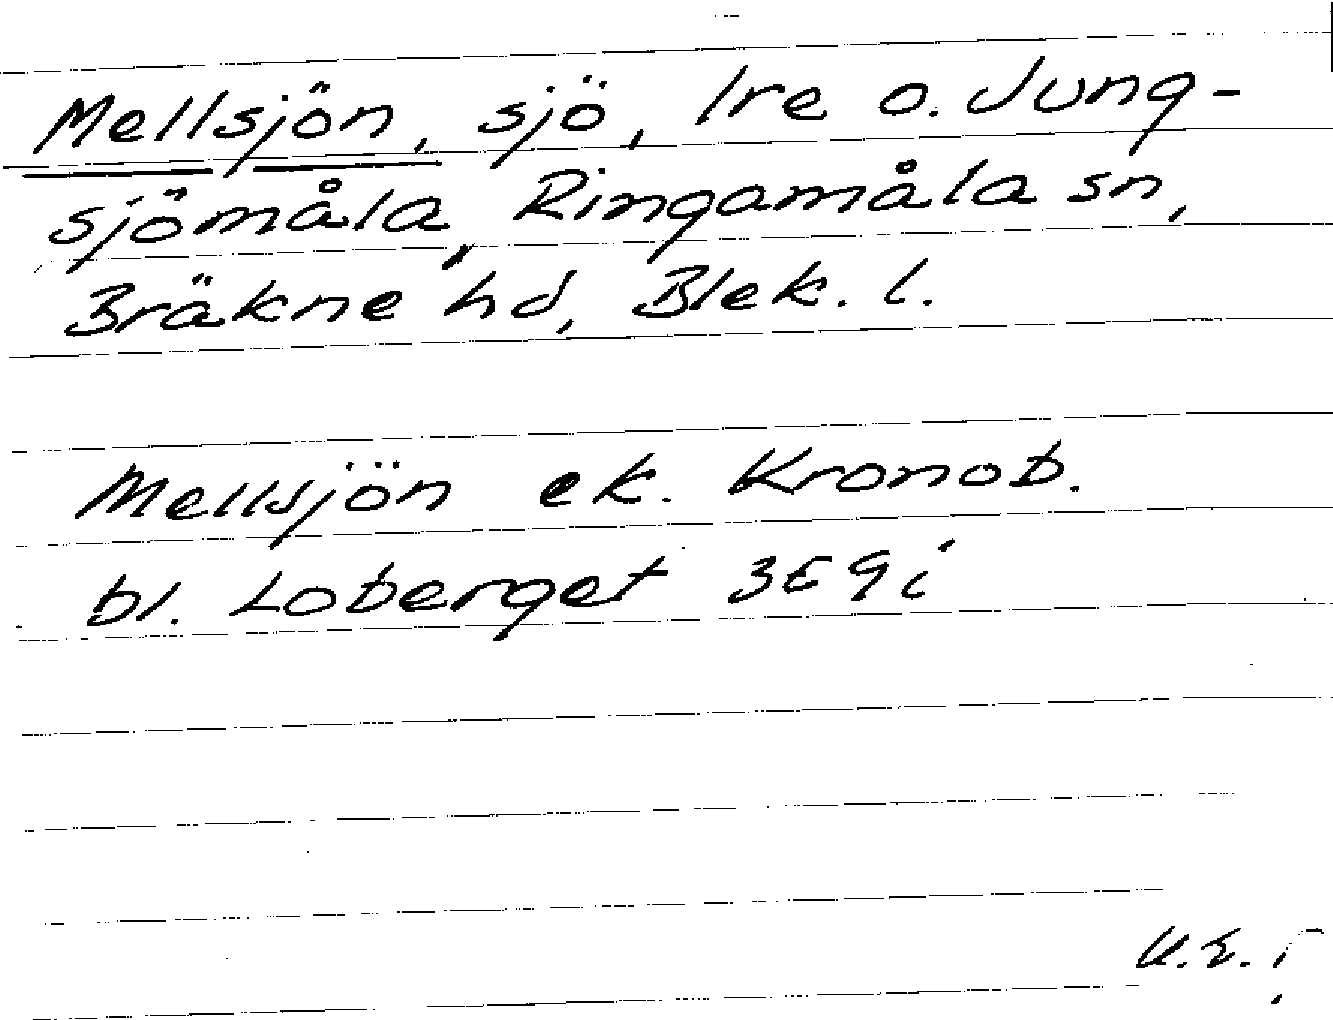 Mellsjön, sjö, Ire o. Jung-
sjömåla, Ringamåla sn,
Bräkne hd, Blek. l.
Mellsjön ek. Kronob.
bl. Loberget 3E9i